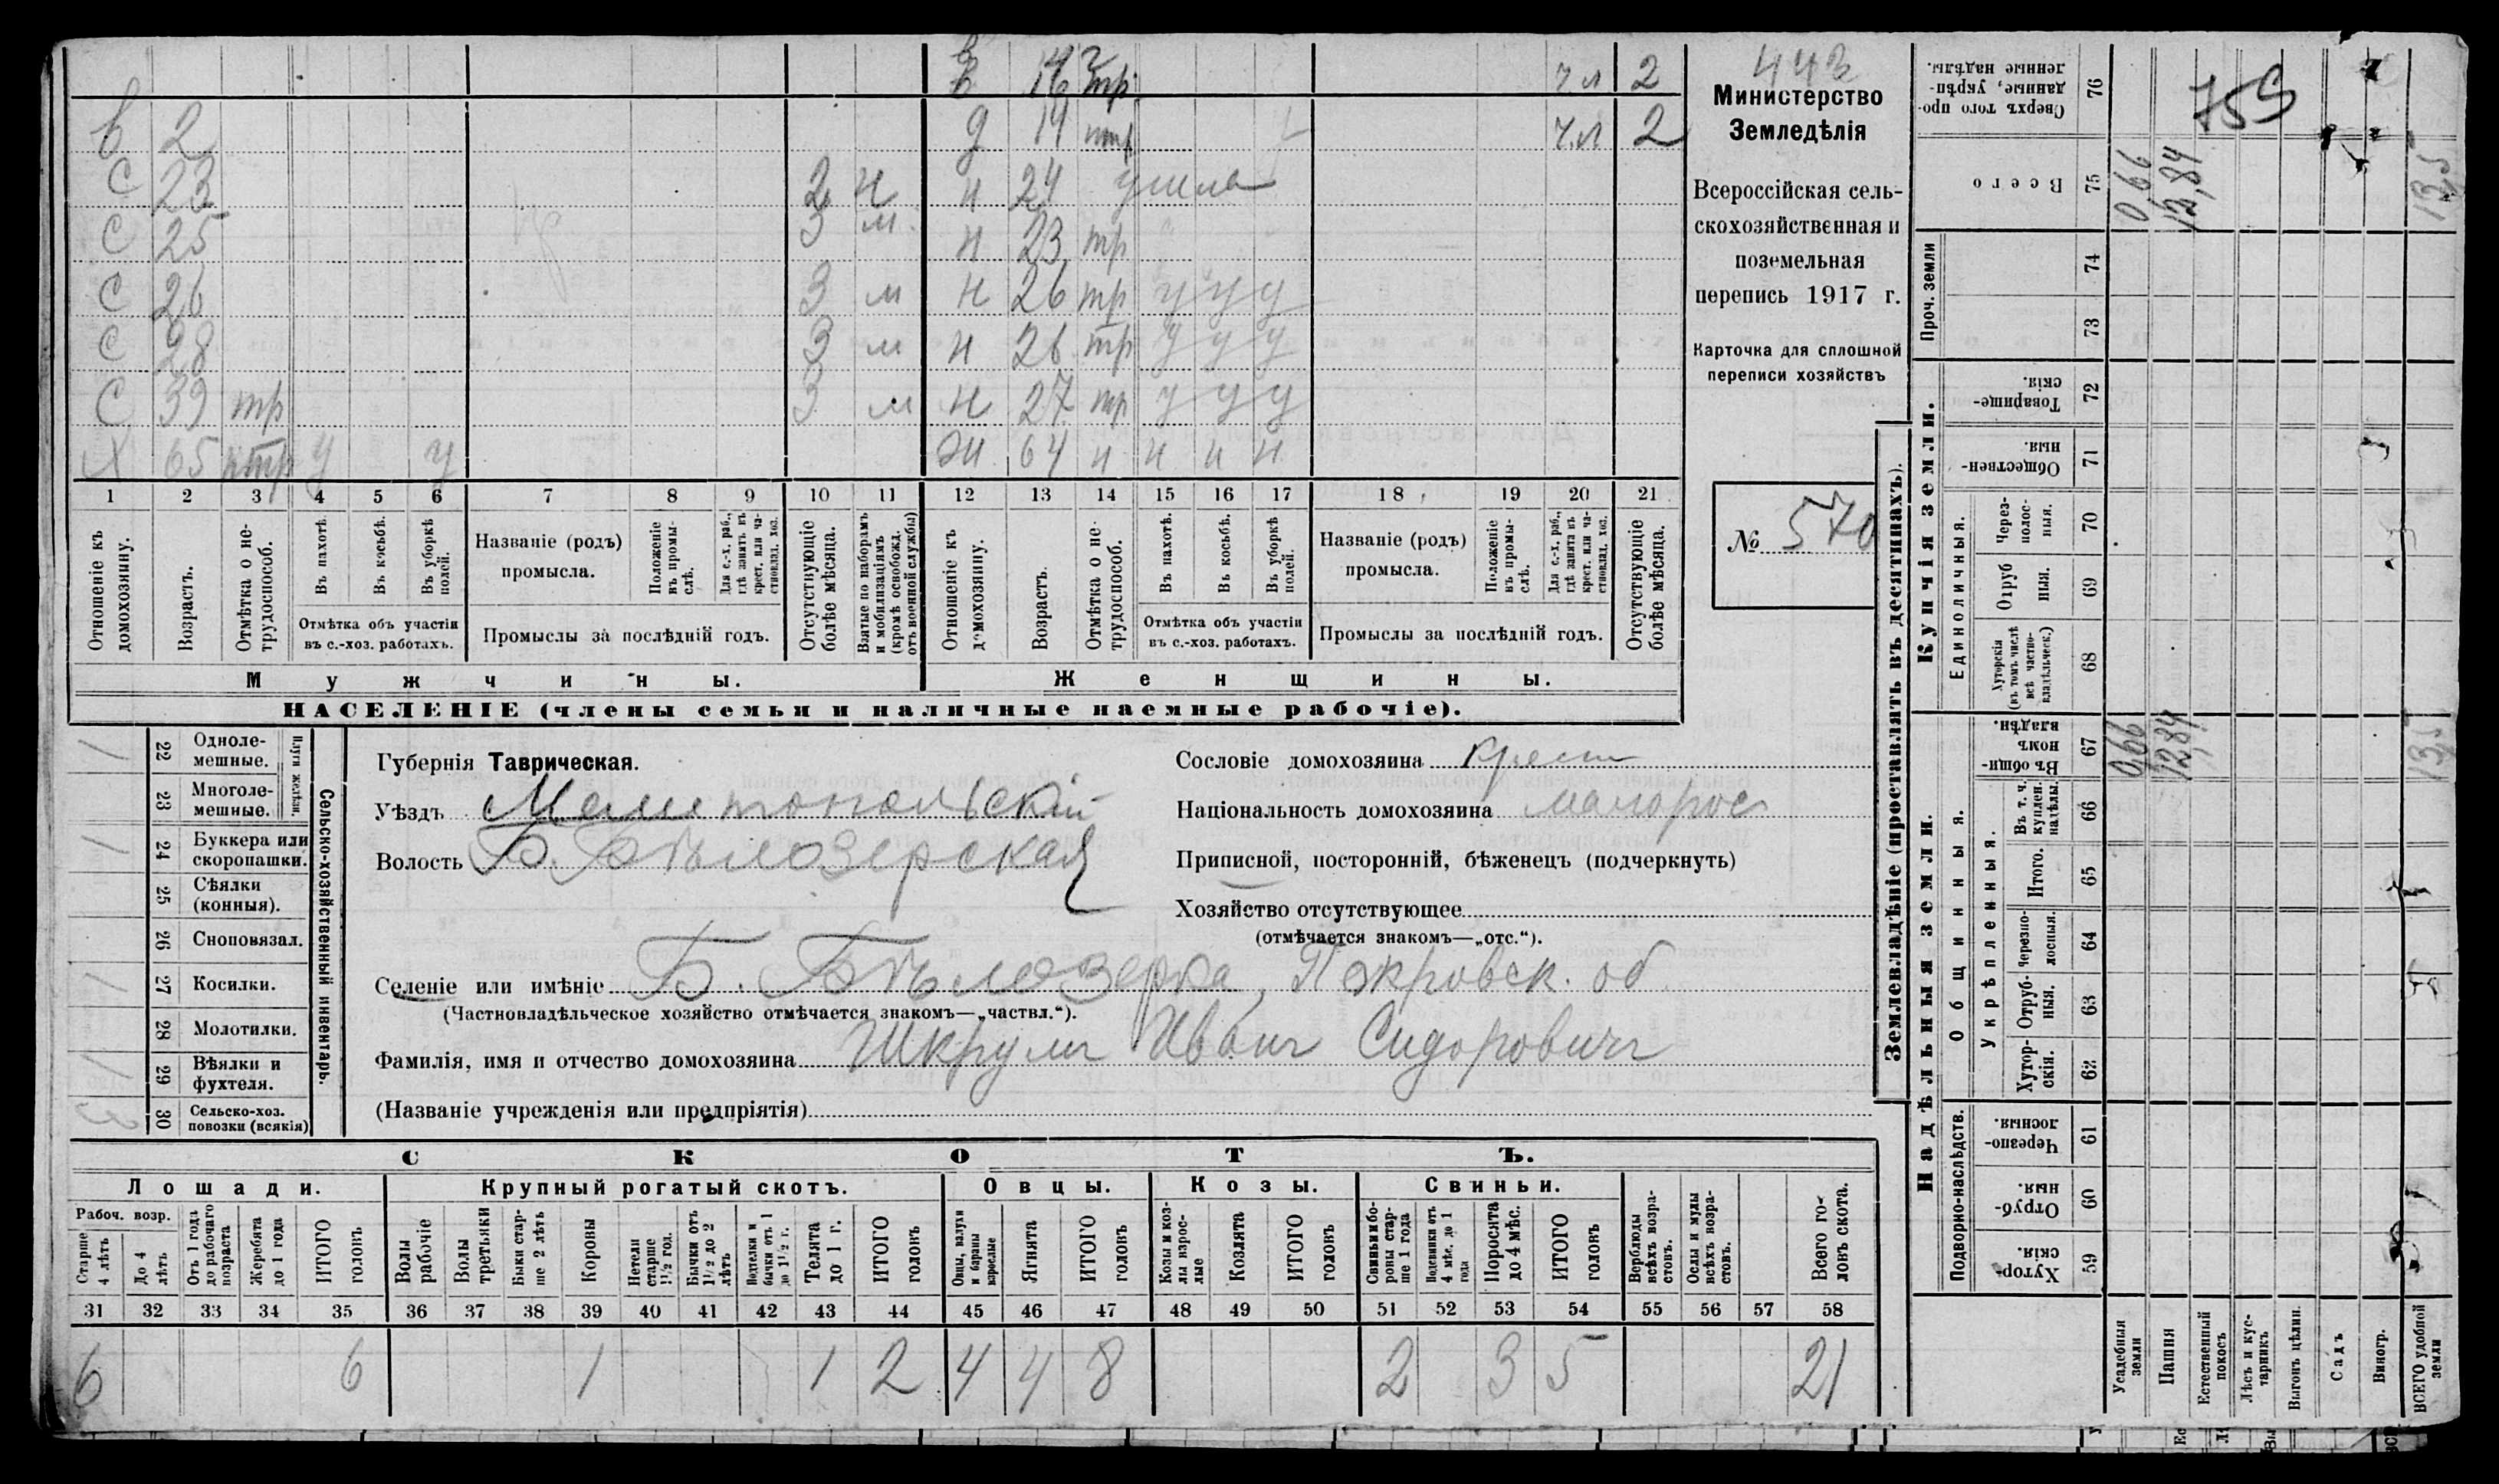 в 14 2
в 16 тр. ч л 2
в 2 д 14 тр ч.л 2
с 23 2 н н 24 ушла
с 25 3 м н 23 тр
с 26 3 м н 26 тр у у у
с 28 3 м н 26 тр у у у
с 39 тр 3 м н 27 тр у у у
х 65 птр у у ж 64 н н н н
1 2 3 4 5 6 7 8 9 10 11 12 13 14 15 16 17 18 19 20 21
Отношеніе къ домохозяину.
Возрастъ.
Отмѣтка о нетрудоспособ.
Въ пахотѣ.
Въ косьбѣ.
Въ уборкѣ полей.
Отмѣтка объ участіи въ с.-хоз. работахъ.
Названіе (родъ) промысла.
Положеніе въ промыслѣ.
Для с.-х. раб., гдѣ занятъ въ крест. или частновлад. хоз.
Промыслы за послѣдній годъ.
Отсутствующіе болѣе мѣсяца.
Взятые по наборамъ и мобилизаціямъ (кромѣ освобожд. отъ военной службы)
Отношеніе къ домохозяину.
Возрастъ.
Отмѣтка о нетрудоспособ.
Въ пахотѣ.
Въ косьбѣ.
Въ уборкѣ полей.
Отмѣтка объ участіи въ с.-хоз. работахъ.
Названіе (родъ) промысла.
Положеніе въ промыслѣ.
Для с.-х. раб., гдѣ занята въ крест. или частновлад. хоз.
Промыслы за послѣдній годъ.
Отсутствующіе болѣе мѣсяца.
Мужчины. Женщины.
НАСЕЛЕНІЕ (члены семьи и наличные наемные рабочіе).
443
Министерство
Земледѣлія
Всероссійская сель-
скохозяйственная и
поземельная
перепись 1917 г.
Карточка для сплошной
переписи хозяйствъ
№ 570
Сельско-хозяйственный инвентарь.
Плуги желѣзн.
22 Одноле-мешные. 1
23 Многоле-мешные.
24 Буккера или скоропашки. 1
25 Сѣялки (конныя).
26 Сноповязал.
27 Косилки. 1
28 Молотилки.
29 Вѣялки и фухтеля. 1
30 Сельско-хоз. повозки (всякія) 3
Губернія Таврическая.
Уѣздъ Мелитопольскій
Волость Б. Бѣлозерская
Сословіе домохозяина крест
Національность домохозяина малорос
Приписной, посторонній, бѣженецъ (подчеркнуть)
Хозяйство отсутствующее
(отмѣчается знакомъ—„отс.“).
Селеніе или имѣніе Б. Бѣлозерка, Покровск. об
(Частновладѣльческое хозяйство отмѣчается знакомъ—„частвл.“).
Фамилія, имя и отчество домохозяина Шкрумъ Иванъ Сидоровичъ
(Названіе учрежденія или предпріятія)
СКОТЪ.
Лошади. Крупный рогатый скотъ. Овцы. Козы. Свиньи.
Рабоч. возр.
Старше 4 лѣтъ
До 4 лѣтъ
Отъ 1 года до рабочаго возраста
Жеребята до 1 года
ИТОГО головъ
Волы рабочіе
Волы третьяки
Быки старше 2 лѣтъ
Коровы
Нетели старше 1½ год.
Бычки отъ 1½ до 2 лѣтъ
Подтелки и бычки отъ 1 до 1½ г.
Телята до 1 г.
ИТОГО головъ
Овцы, валухи и бараны взрослые
Ягнята
ИТОГО головъ
Козы и козлы взрослые
Козлята
ИТОГО головъ
Свиньи и боровы старше 1 года
Подсвинки отъ 4 мѣс. до 1 года
Поросята до 4 мѣс.
ИТОГО головъ
Верблюды всѣхъ возрастовъ.
Ослы и мулы всѣхъ возрастовъ.
Всего головъ скота.
31 32 33 34 35 36 37 38 39 40 41 42 43 44 45 46 47 48 49 50 51 52 53 54 55 56 57 58
6 6 1 1 2 4 4 8 2 3 5 21
Землевладѣніе (проставлять въ десятинахъ).
Надѣльныя земли.
Купчія земли.
Проч. земли
Подворно-наслѣдств.
Общинныя.
Укрѣпленныя.
Единоличныя.
59 Хуторскія.
60 Отрубныя.
61 Черезполосныя.
62 Хуторскія.
63 Отрубныя.
64 Черезполосныя.
65 Итого.
66 Въ т. ч. куплен. надѣлы.
67 Въ общинномъ владѣн. 0,66 12,84 13,5
68 Хуторскія (въ томъ числѣ всѣ частновладѣльческ.)
69 Отрубныя.
70 Черезполосныя.
71 Общественныя.
72 Товарищескія.
73
74
75 Всего 0,66 12,84 13,5
76 Сверхъ того проданные, укрѣпленные надѣлы.
755
Усадебныя земли
Пашня
Естественный покосъ
Лѣсъ и кустарникъ
Выгонъ цѣлин.
Садъ
Виногр.
ВСЕГО удобной земли